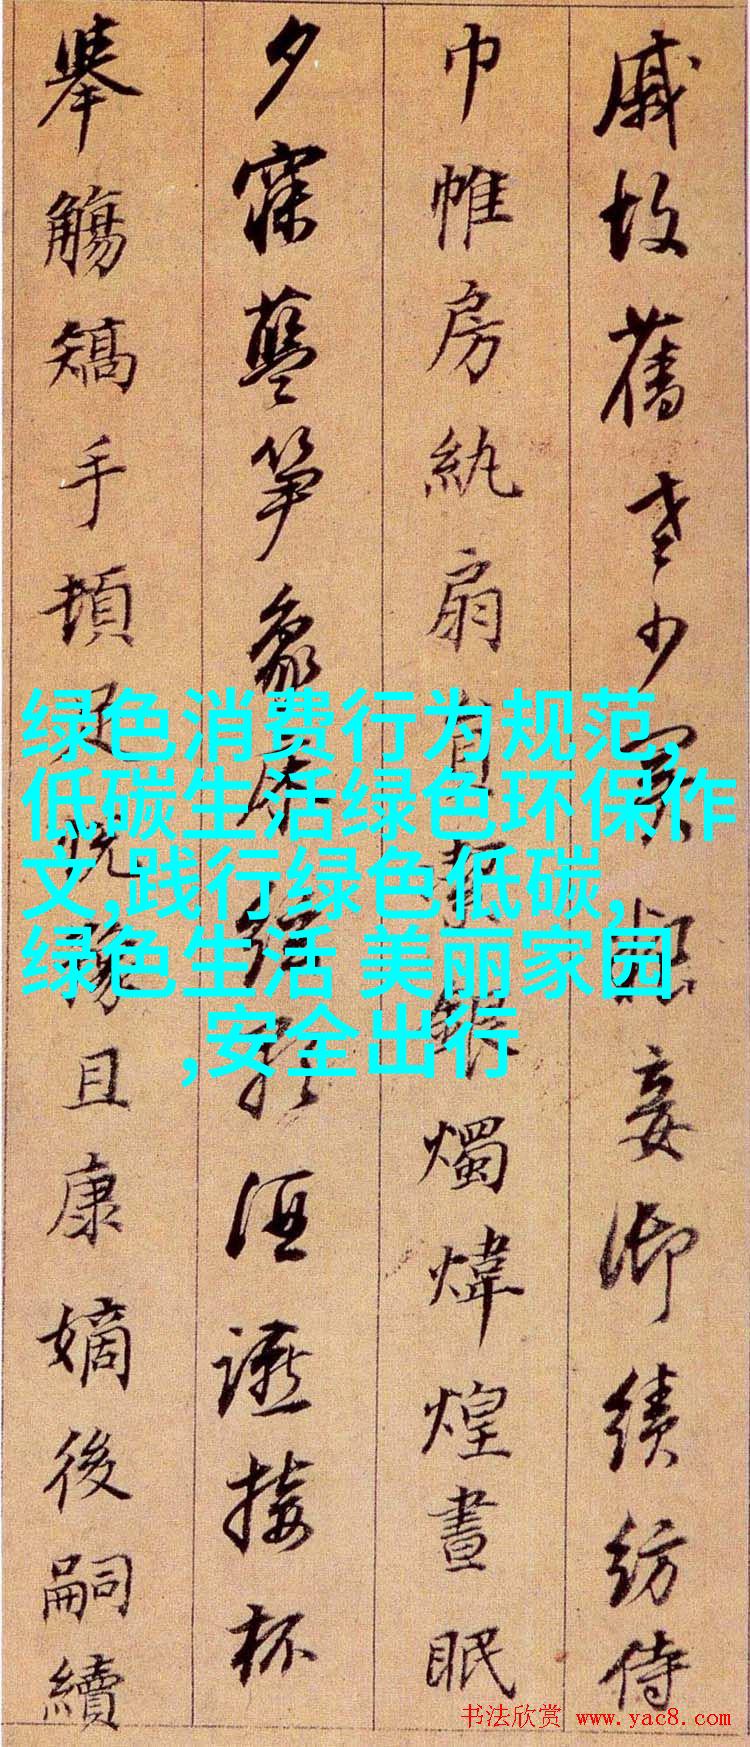 戚故舊老少異粮妾御績紡侍
巾帷房紈扇員潔銀燭煒煌晝眠
夕寐藍笋象床絃歌酒讌接杯
舉觴矯手頓足悅豫且康嫡後嗣續
绿色消费行为规范,
低碳生活绿色环保作
文,践行绿色低碳,
绿色生活 美丽家园
,安全出行
书法欣赏 www.yac8.com